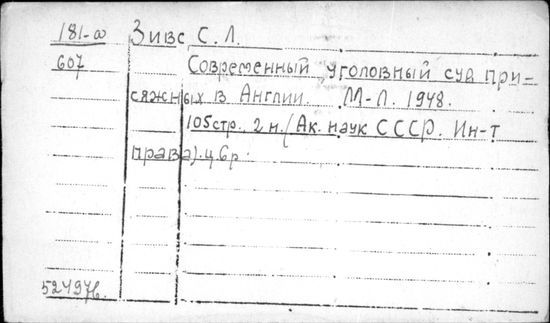 181-а Зивс С. Л.
607 Современный уголовный суд при-
сяжных в Англии. М-Л. 1948.
105 стр. 2 н. (Ак. наук СССР. Ин-т
права). ц 6 р.
524976.